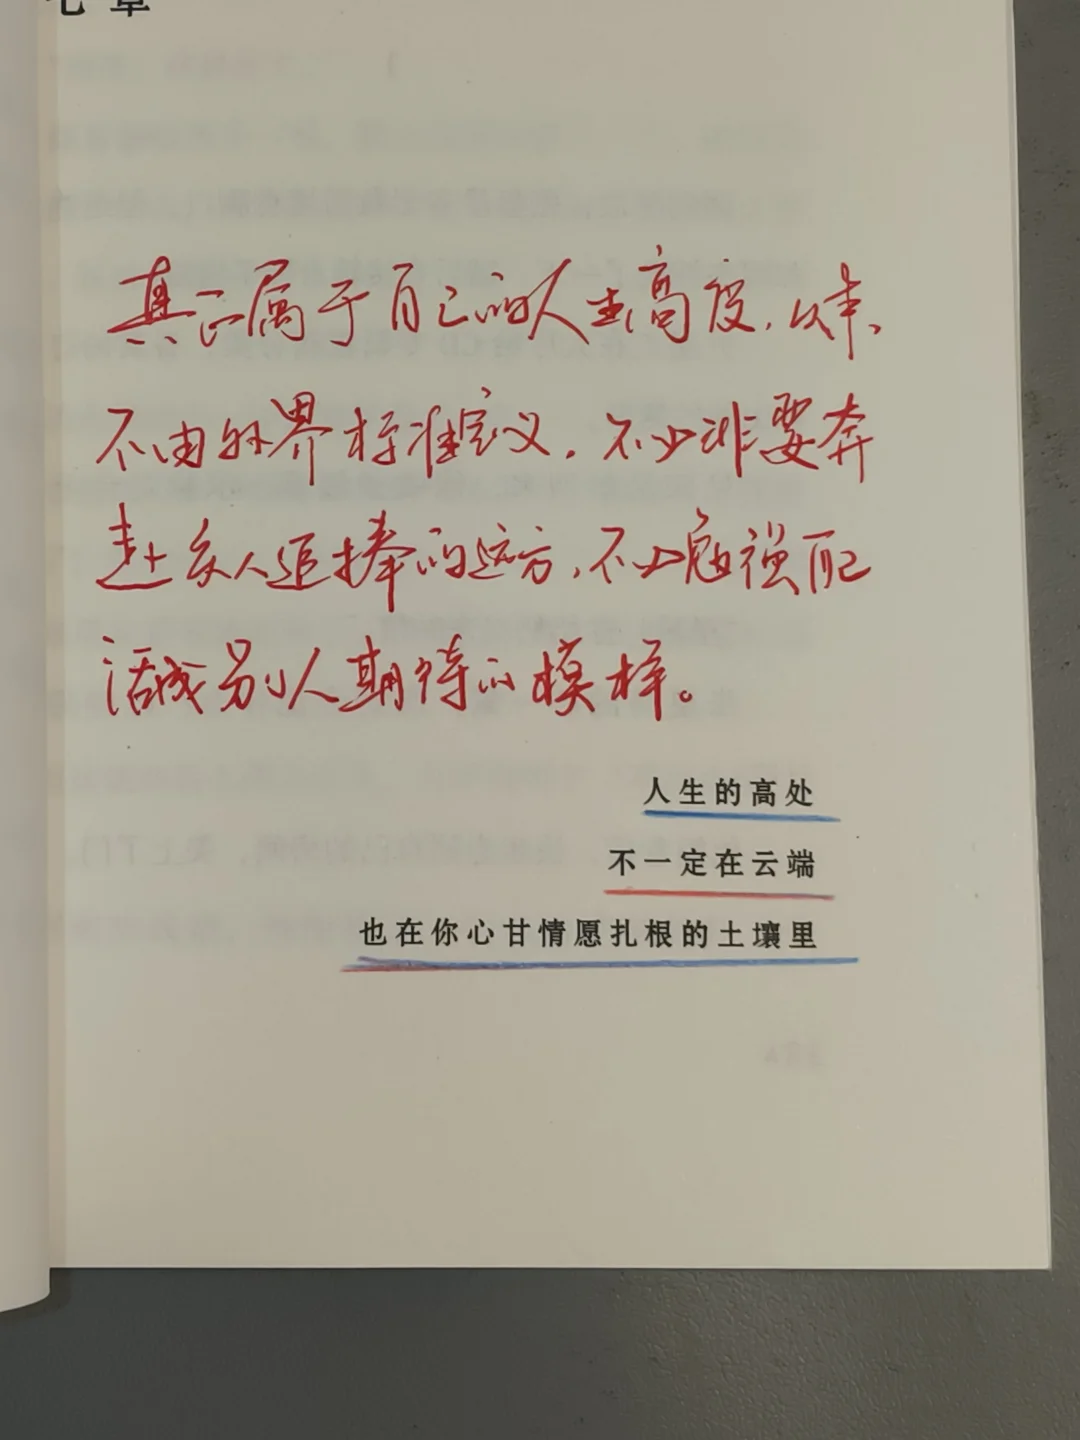 章
真正属于自己的人生高度，从来
不由外界标准定义，不必非要奔
赴众人追捧的远方，不必勉强自己
活成别人期待的模样。
人生的高处
不一定在云端
也在你心甘情愿扎根的土壤里